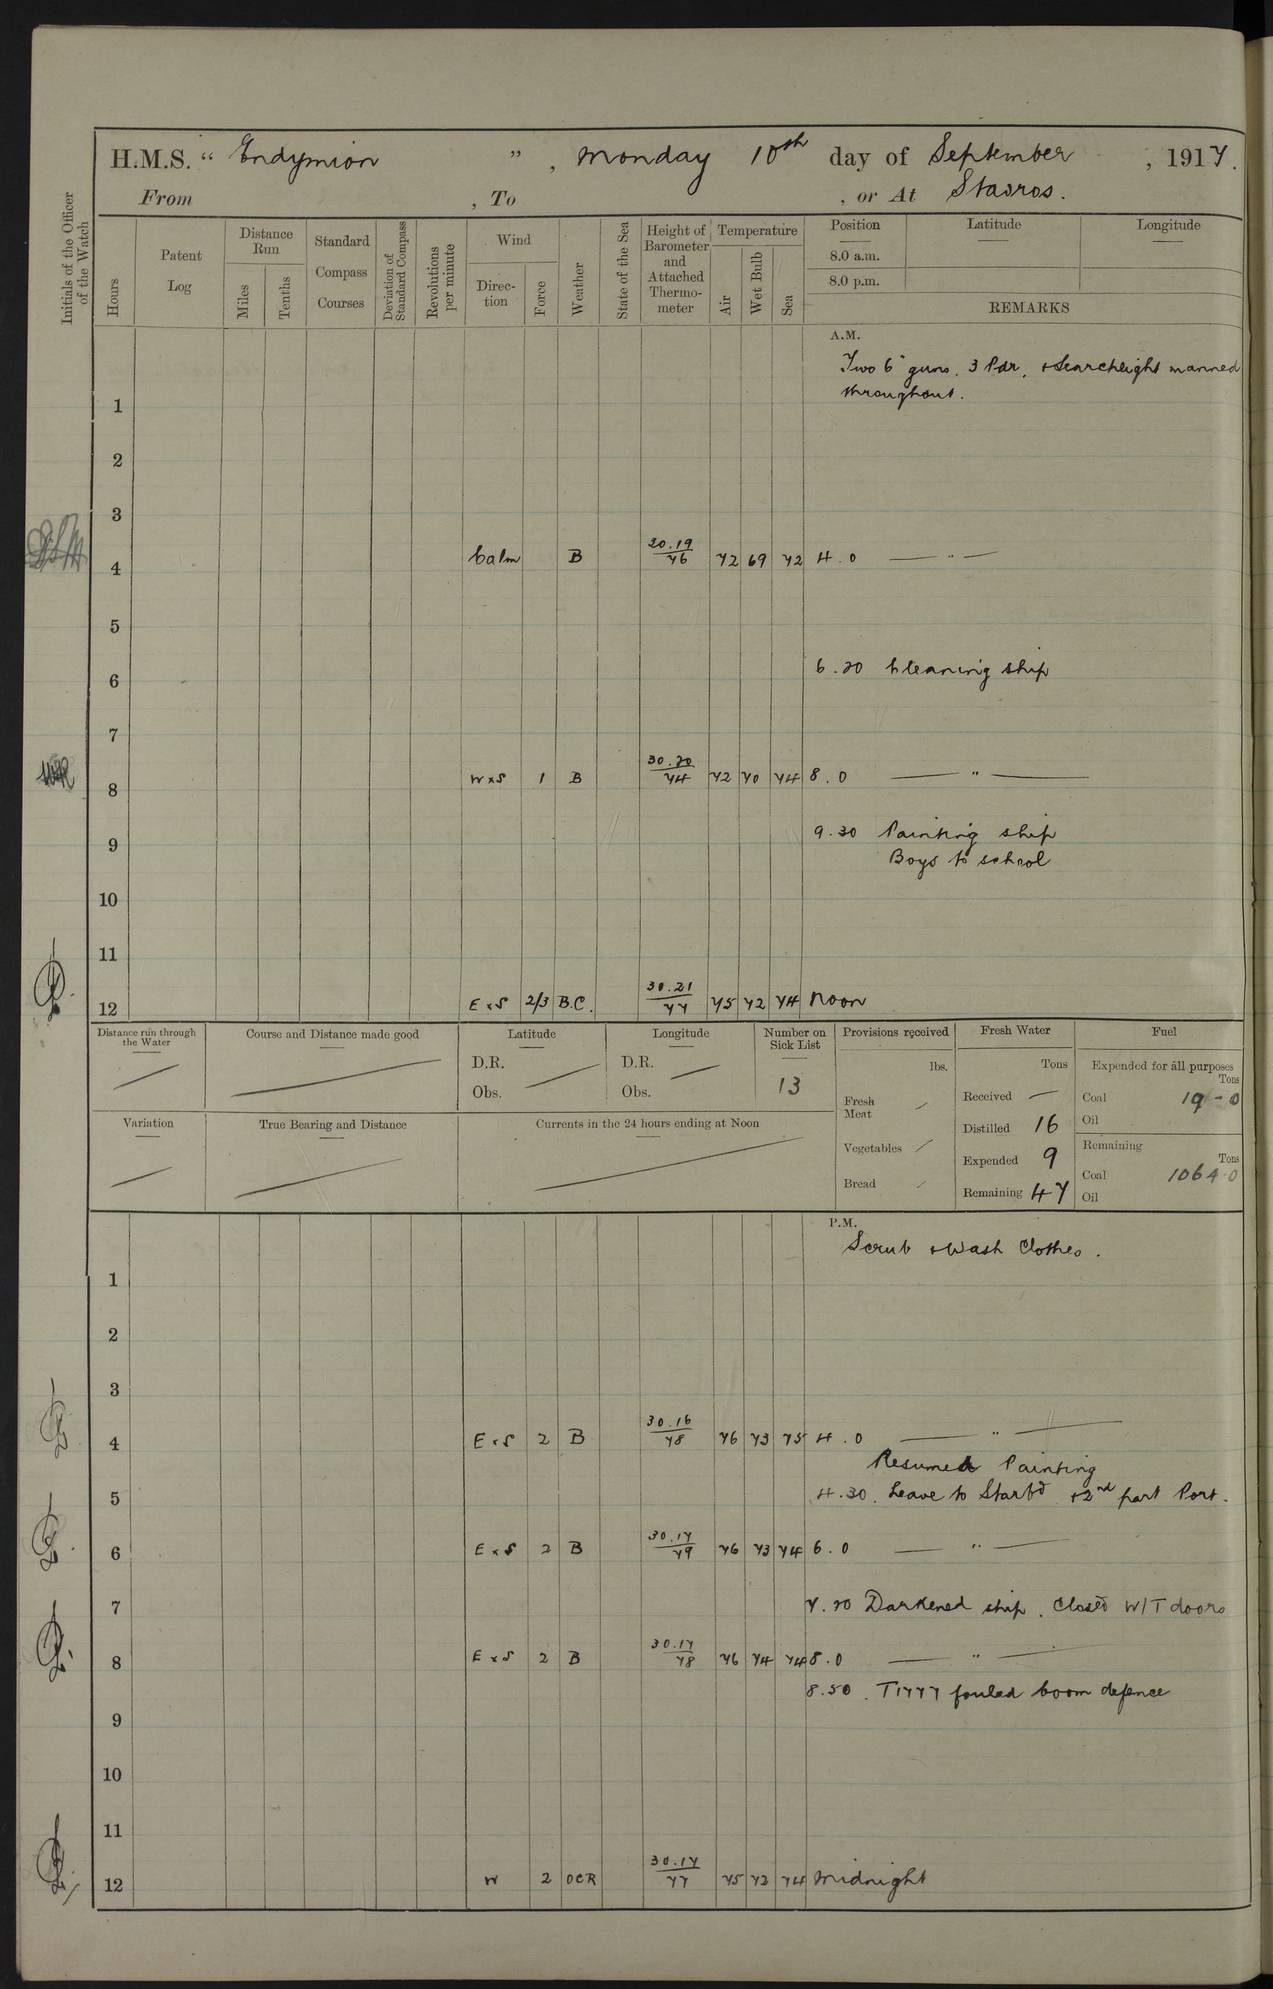 H.M.S. “ Endymion ” , Monday 10th day of September , 1917.
From , To , or At Stavros.
Initials of the Officer of the Watch
Hours
Patent Log
Distance Run
Miles
Tenths
Standard Compass Courses
Deviation of Standard Compass
Revolutions per minute
Wind
Direc- tion
Force
Weather
State of the Sea
Height of Barometer and Attached Thermo- meter
Temperature
Air
Wet Bulb
Sea
Position Latitude Longitude
8.0 a.m.
8.0 p.m.
REMARKS
A.M.
Two 6" guns. 3 Pdr. + Searchlight manned
throughout.
1
2
3
4 Calm B 30.19/76 72 69 72 4.0 — " —
5
6.20 Cleaning ship
6
7
8 W x S 1 B 30.20/74 72 70 74 8.0 — " —
9.30 Painting ship
9
Boys to school
10
11
12 E x S 2/3 B.C. 30.21/77 75 72 74 Noon
Distance run through the Water
Course and Distance made good
Latitude
D.R.
Obs.
Longitude
D.R.
Obs.
Number on Sick List
13
Provisions received
lbs.
Fresh Meat
Vegetables
Bread
Fresh Water
Tons
Received —
Distilled 16
Expended 9
Remaining 47
Fuel
Expended for all purposes
Tons
Coal 19-0
Oil
Remaining
Tons
Coal 1064.0
Oil
Variation
True Bearing and Distance
Currents in the 24 hours ending at Noon
P.M.
Scrub + Wash Clothes.
1
2
3
4 E x S 2 B 30.16/78 76 73 75 4.0 — " —
Resumed Painting
5 4.30. Leave to Starbd + 2nd part Port.
6 E x S 2 B 30.17/79 76 73 74 6.0 — " —
7 7.20 Darkened ship. Closed W/T doors
8 E x S 2 B 30.17/78 76 74 74 8.0 — " —
8.50. T1777 fouled boom defence
9
10
11
12 W 2 OCR 30.17/77 75 72 74 Midnight